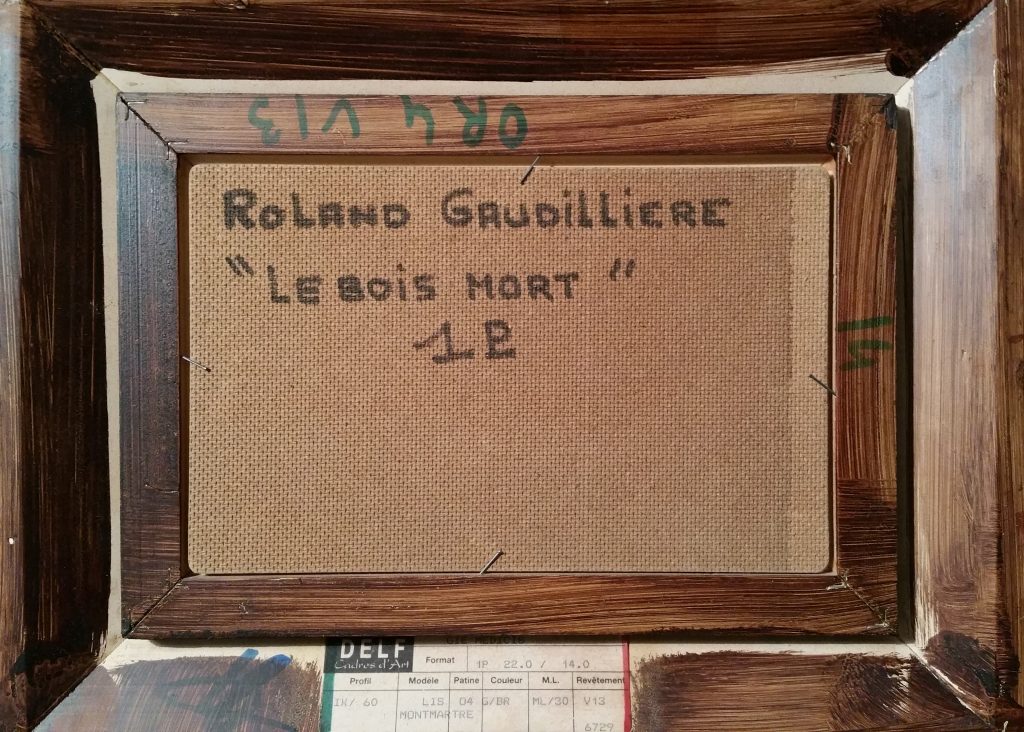 OR4 V13
ROLAND GAUDILLIERE
"LE BOIS MORT"
1P
DELF
Cadres d'Art
GIE MEDICIS
Format 1P 22.0 / 14.0
Profil Modèle Patine Couleur M.L. Revêtement
IK/ 60 LIS 04 G/BR ML/30 V13
MONTMARTRE
6729